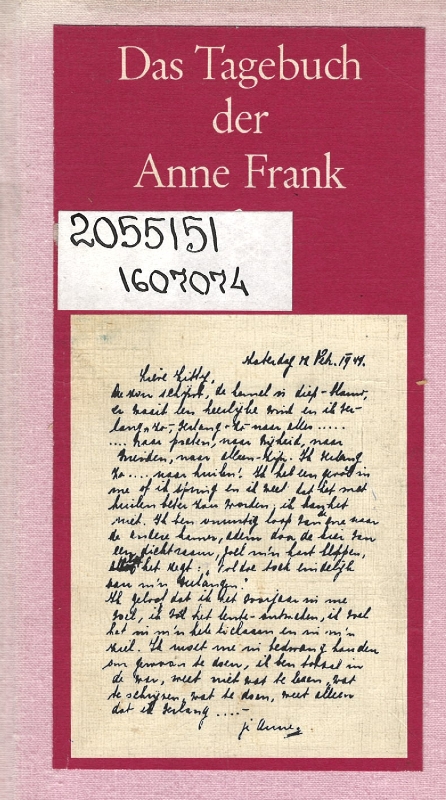 Das Tagebuch
der
Anne Frank
2055151
1607074
Zaterdag 12 Feb. 1944.
Lieve Kitty,
De zon schijnt, de hemel is diep-blauw,
er waait een heerlijke wind en ik ver-
lang zo, - verlang - zo - naar alles .....
.... Naar praten, naar vrijheid, naar
vrienden, naar alleen-zijn. Ik verlang
zo .... naar huilen! Ik heb een gevoel in
me of ik spring en ik weet dat het met
huilen beter zou worden; ik kan het
niet. Ik ben onrustig, loop van de ene naar
de andere kamer, adem door de kier van
een dicht raam, voel m'n hart kloppen,
alsof het zegt: , voldoe toch eindelijk
aan m'n verlangen!
Ik geloof dat ik het voorjaar in me
voel, ik voel het lente-ontwaken, ik voel
het in m'n hele lichaam en in m'n
ziel. Ik moet me in bedwang houden
om gewoon te doen, ik ben totaal in
de war, weet niet wat te lezen, wat
te schrijven, wat te doen, weet alleen
dat ik verlang ....-
je Anne